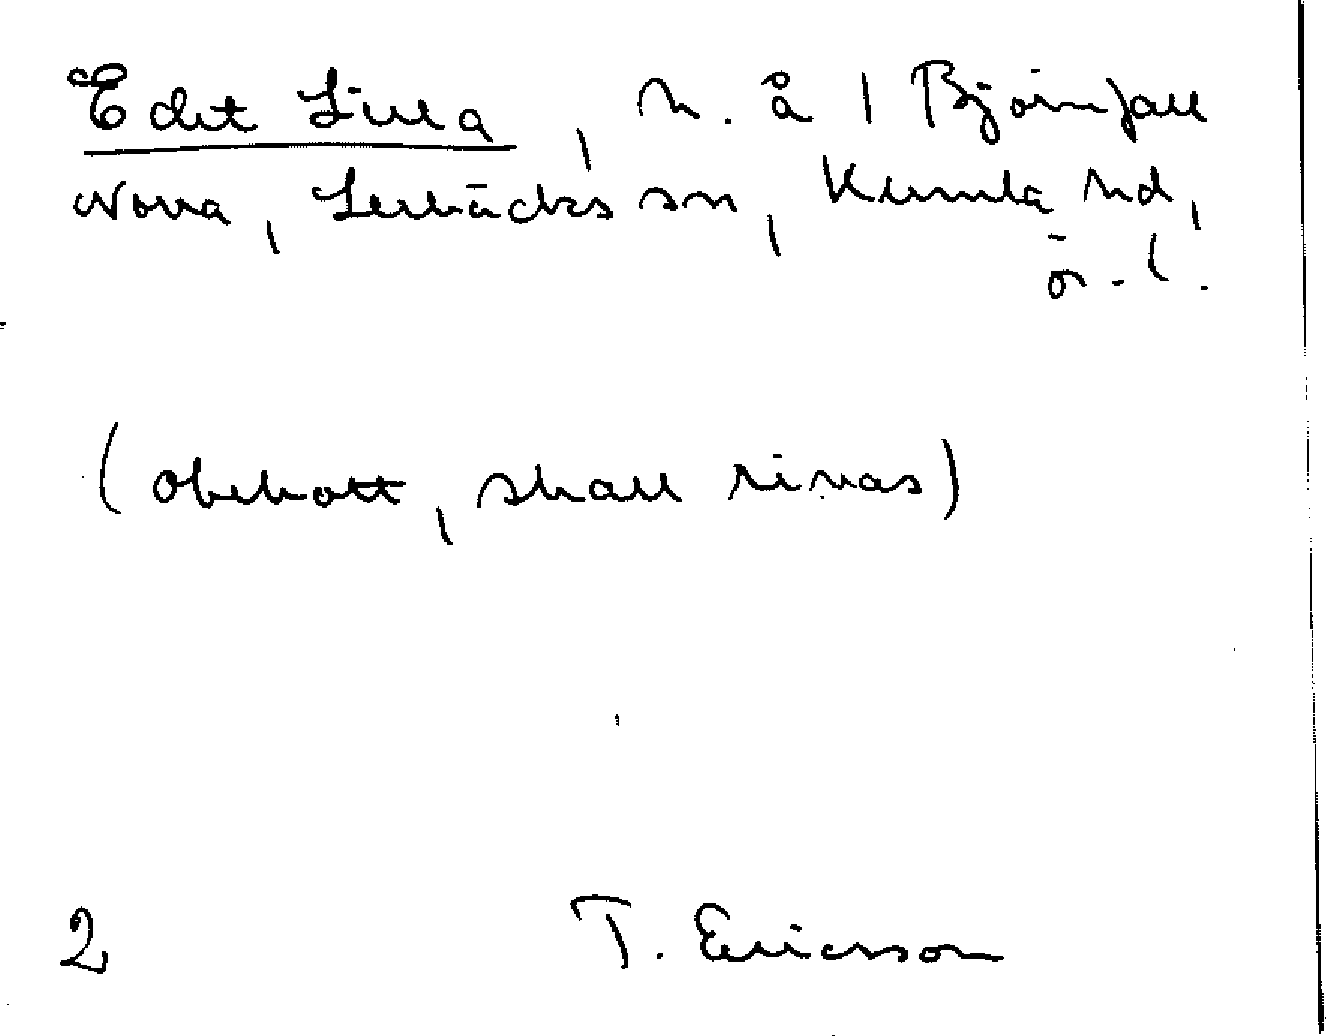 Edet Lilla, h. å 1 Björnfall
Norra, Lerbäcks sn, Kumla hd,
ö. l.
(obebott, skall rivas)
2 T. Ericson